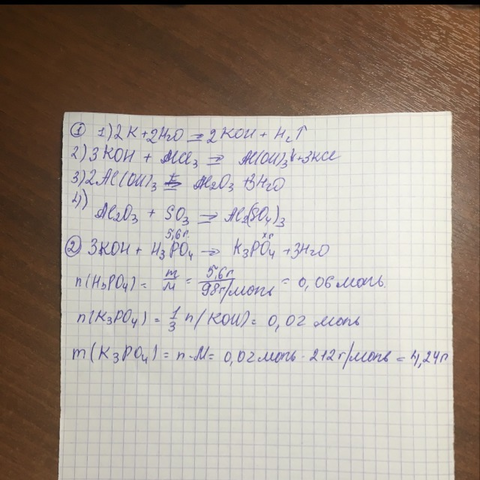 ① 1) 2K + 2H₂O = 2KOH + H₂↑
2) 3KOH + AlCl₃ = Al(OH)₃↓ + 3KCl
3) 2Al(OH)₃ = Al₂O₃ + 3H₂O
4)
Al₂O₃ + SO₃ → Al₂(SO₄)₃
5,6г хг
② 3KOH + H₃PO₄ → K₃PO₄ + 3H₂O
n(H₃PO₄) = m/M = 5,6г/98г/моль = 0,06 моль
n(K₃PO₄) = 1/3 n(KOH) = 0,02 моль
m(K₃PO₄) = n·M = 0,02 моль · 212 г/моль = 4,24г